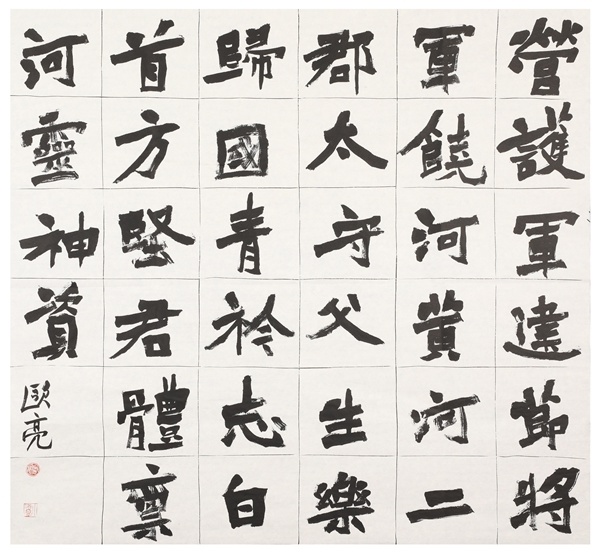 營護軍建節將
軍饒河黃河二
郡太守父生樂
歸國青衿志白
首方堅君體稟
河靈神資
歐亮